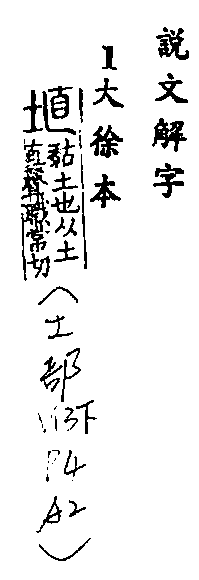 説文解字
1大徐本
埴 黏土也从土
直聲常職切
(土部
13下
P4
A2)